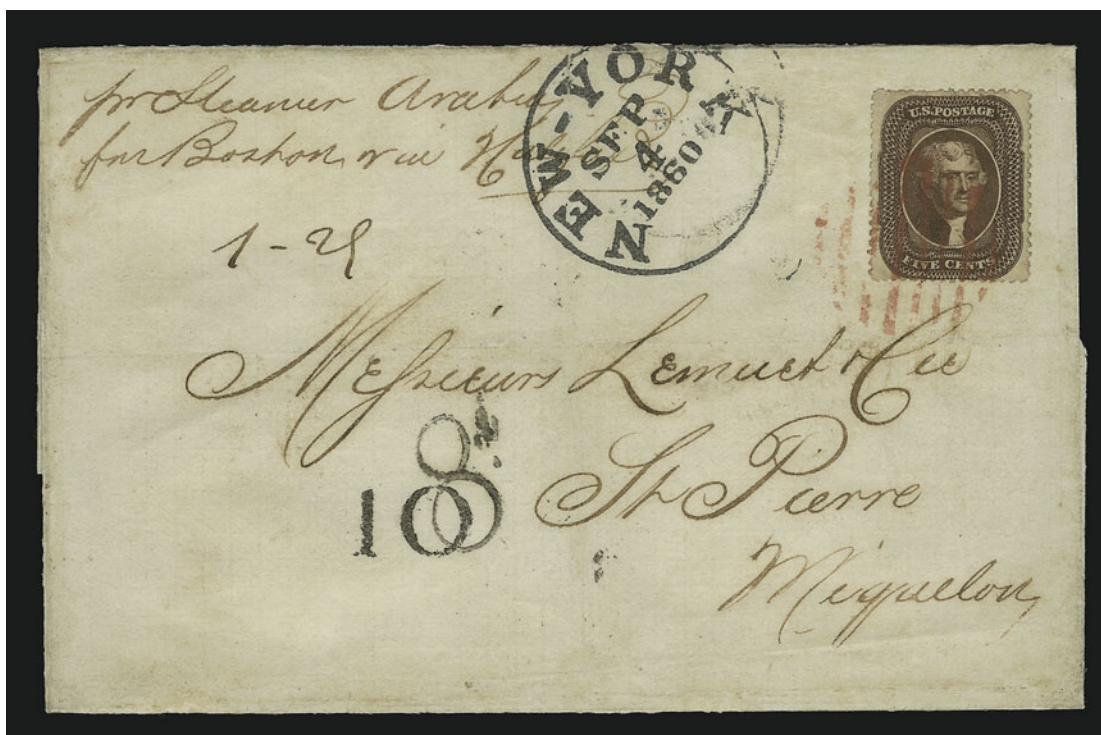 pr Steamer Arabia
for Boston via Halifax
NEW-YORK
SEP
4
1860
U.S. POSTAGE
FIVE CENTS
1-25
Messieurs Lemuet & Cie
St Pierre
Miquelon
8
10